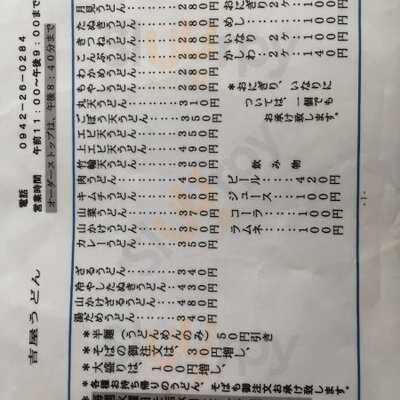 吉屋うどん
電話 0942-26-0284
営業時間 午前11:00〜午後9:00まで
オーダーストップは、午後8:40分まで
月見うどん・・・・・・280円
たぬきうどん・・・・・280円
きつねうどん・・・・・280円
こんぶうどん・・・・・280円
わかめうどん・・・・・280円
もやしうどん・・・・・280円
丸天うどん・・・・・・310円
ごぼう天うどん・・・・350円
エビ天うどん・・・・・350円
上エビ天うどん・・・・490円
竹輪天うどん・・・・・350円
肉うどん・・・・・・・400円
キムチうどん・・・・・350円
山菜うどん・・・・・・370円
山かけうどん・・・・・370円
カレーうどん・・・・・350円
ざるうどん・・・・・・340円
冷やしたぬきうどん・・430円
山かけざるうどん・・・480円
湯だめうどん・・・・・340円
おにぎり2ヶ・・・100円
めし・・・・・・・100円
いなり 2ヶ・・・100円
かしわ 2ヶ・・・140円
*おにぎり、いなりに
ついては、一個でも
お承け致します。
飲み物
ビール・・・・420円
ジュース・・・100円
コーラ・・・・100円
ラムネ・・・・100円
*半麺(うどんめんのみ)50円引き
*そばの御注文は、30円増し、
*大盛りは、100円増し、
*各種お持ち帰りのうどん、そばも御注文お承け致します。
-1-